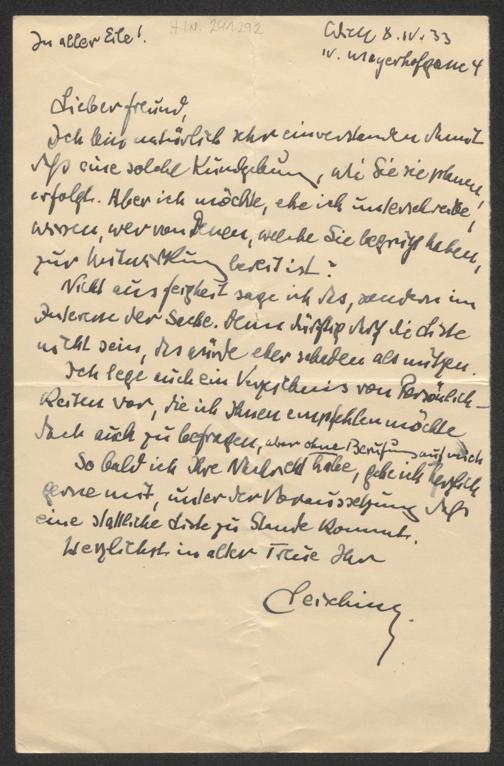 In aller Eile!
H.I.N. 241292
Wien 8. IV. 33
IV. Mayerhofgasse 4
Lieber Freund,
Ich bin natürlich sehr einverstanden damit
daß eine solche Kundgebung, wie Sie sie planen,
erfolgt. Aber ich möchte, ehe ich unterschreibe,
wissen, wer von Denen, welche Sie begrüßt haben,
zur Mitwirkung bereit ist?
Nicht aus Feigheit sage ich das, sondern im
Interesse der Sache. Denn dürftig darf die Liste
nicht sein, das würde eher schaden als nützen.
Ich lege auch ein Verzeichnis von Persönlich-
keiten vor, die ich Ihnen empfehlen möchte
doch auch zu befragen, aber ohne Berufung auf mich
So bald ich Ihre Nachricht habe, gehe ich herzlich
gerne mit, unter der Voraussetzung daß
eine stattliche Liste zu Stande kommt.
Herzlichst in alter Treue Ihr
Leisching.